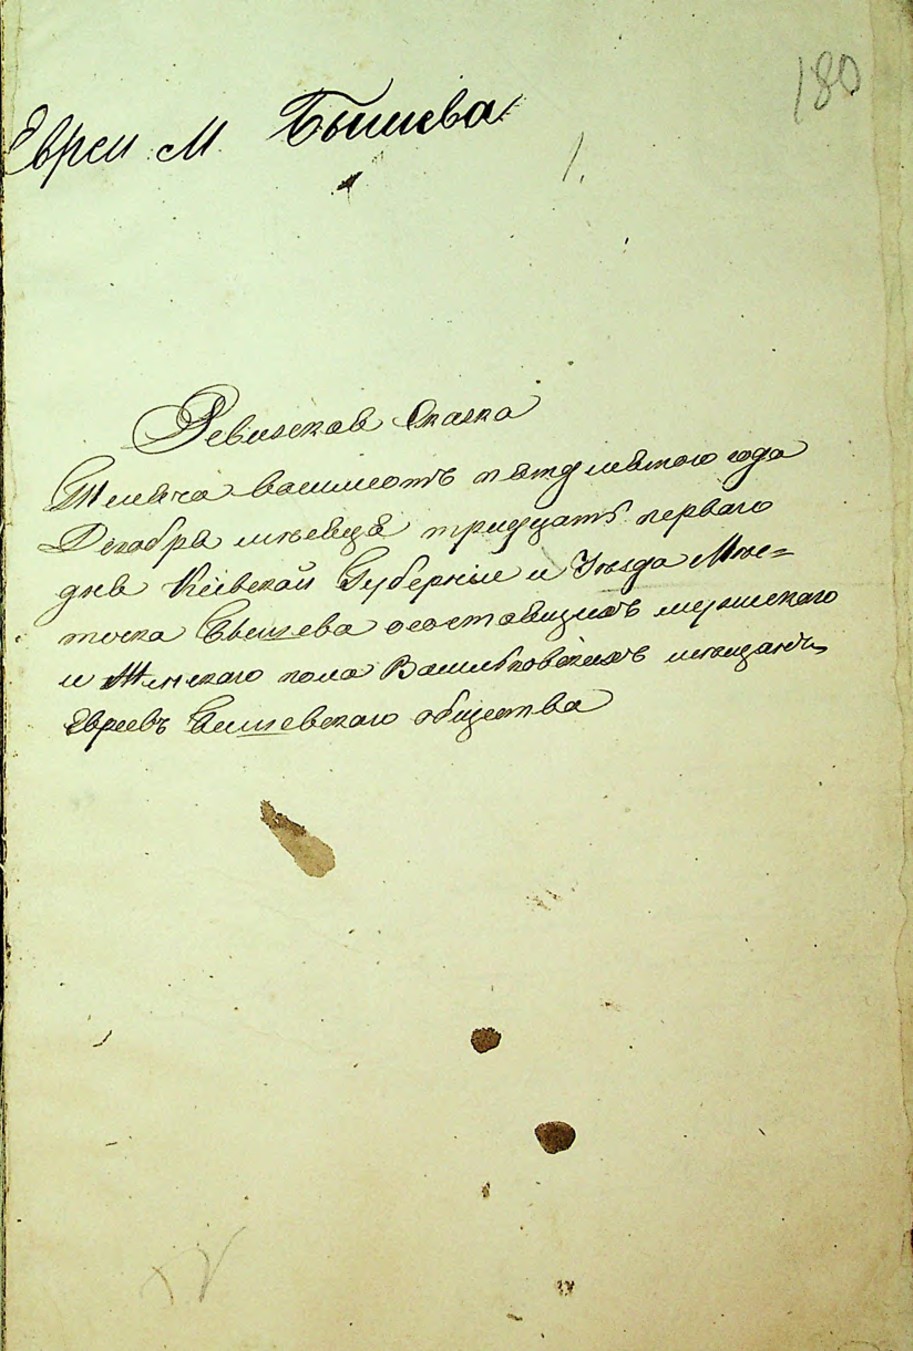 180
Евреи М. Бышева
1.
Ревизская Сказка
Тысяча восимсотъ пятдесятого года
Декабря мѣсяца тридцать перваго
дня Кіевской Губерніи и Уѣзда Мѣс=
точка Бышева о состоящихъ мужискаго
и Женскаго пола Васильковскихъ мѣщанъ
Евреевъ Бышевскаго общества